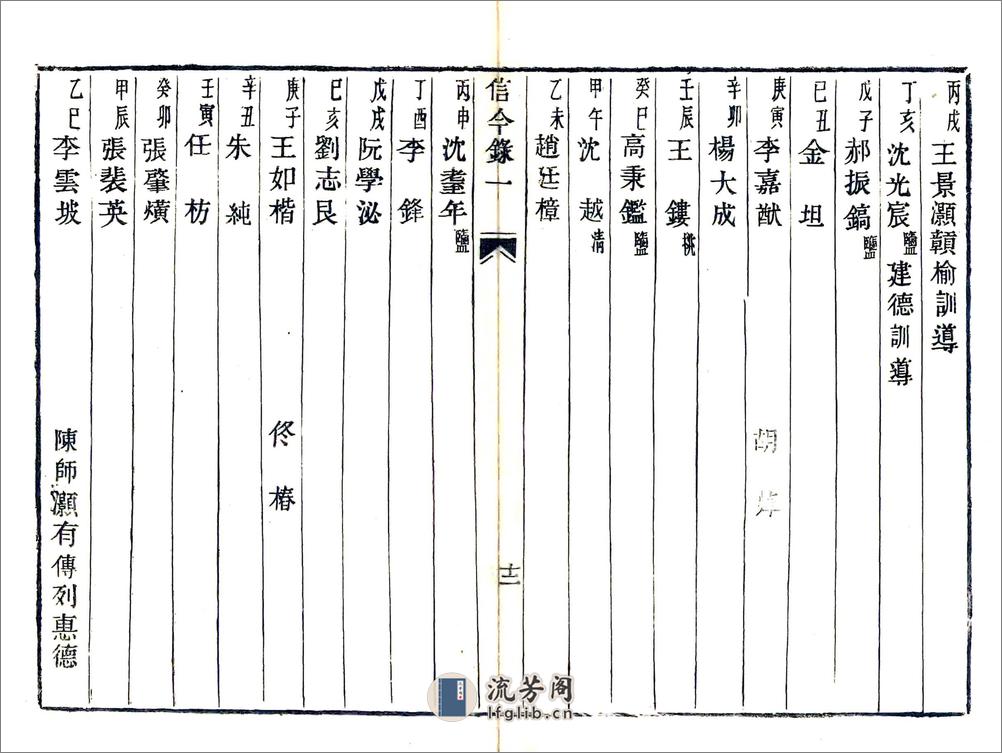 丙戌 王景灝 贛榆訓導
丁亥 沈光宸 鹽 建德訓導
戊子 郝振鎬 鹽
己丑 金坦
庚寅 李嘉猷 胡
辛卯 楊大成
壬辰 王鏤 桃
癸巳 高秉鑑 鹽
甲午 沈越 清
乙未 趙廷樟
信今錄一 十二
丙申 沈耋年 鹽
丁酉 李鋒
戊戌 阮學泌
己亥 劉志艮
庚子 王如楷 佟椿
辛丑 朱純
壬寅 任枋
癸卯 張肇熿
甲辰 張裴英
乙巳 李雲坡 陳師灝有傳列惠德
流芳阁
lfglib.cn